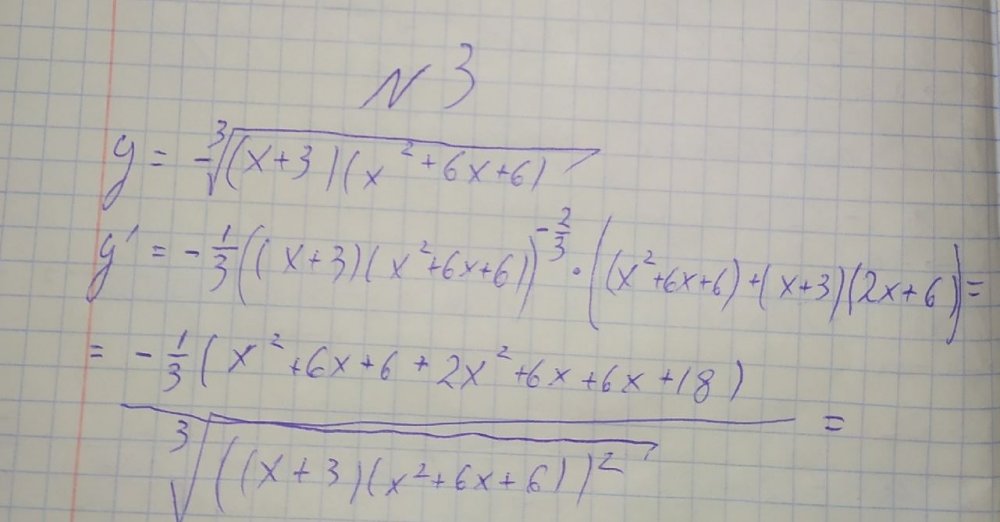 N 3
y = -∛((x+3)(x²+6x+6))
y' = -1/3((x+3)(x²+6x+6))^(-2/3) · ((x²+6x+6)+(x+3)(2x+6)) =
= -1/3(x²+6x+6+2x²+6x+6x+18) / ∛(((x+3)(x²+6x+6))²) =